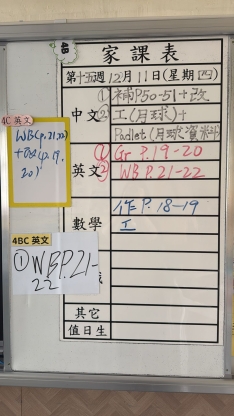 家課表
第十五週12月11日(星期四)
中文
①補P.50-51+改
②工(月球)+
Padlet(月球資料)
英文
①Gr P.19-20
②WB P.21-22
數學
作P.18-19
工
其它
值日生
4C 英文
WB(p.21,22)
20)
4BC 英文
①WB P.21-
22